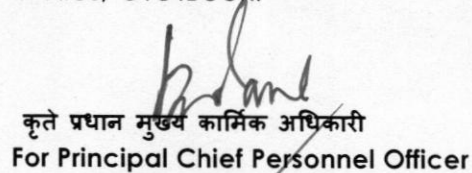 कृते प्रधान मुख्य कार्मिक अधिकारी
For Principal Chief Personnel Officer